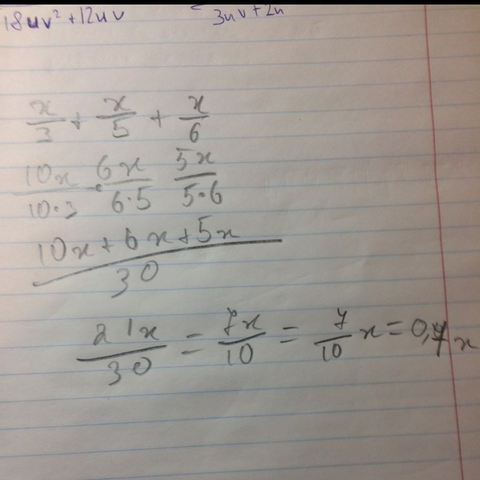 18uv²+12uv 3uv+2u
x/3 + x/5 + x/6
10x/10·3 · 6x/6·5 5x/5·6
10x+6x+5x/30
21x/30 = 7x/10 = 7/10 x = 0,7x